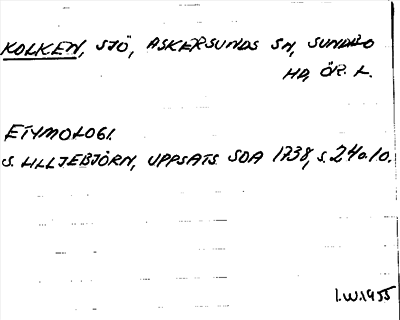 KOLKEN, SJÖ, ASKERSUNDS SN, SUNDBO
HD, ÖR. L.
ETYMOLOGI.
S. LILLJEBJÖRN, UPPSATS SOA 1738, s. 24 o. 10.
I.W. 1955